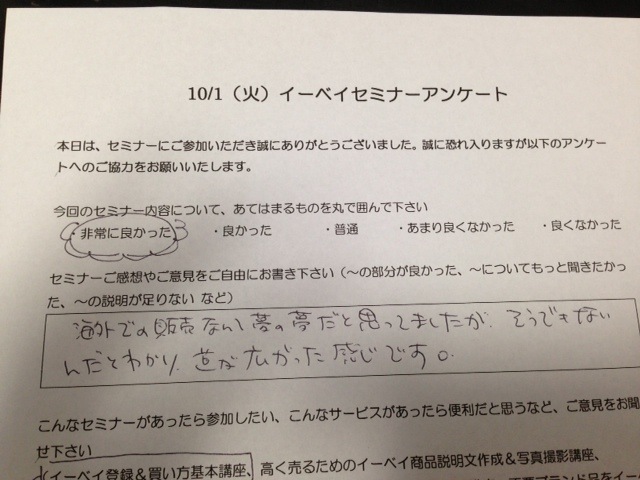 10/1（火）イーベイセミナーアンケート
本日は、セミナーにご参加いただき誠にありがとうございました。誠に恐れ入りますが以下のアンケー
トへのご協力をお願いいたします。
今回のセミナー内容について、あてはまるものを丸で囲んで下さい
・非常に良かった ・良かった ・普通 ・あまり良くなかった ・良くなかった
セミナーご感想やご意見をご自由にお書き下さい（～の部分が良かった、～についてもっと聞きたかっ
た、～の説明が足りない など）
海外での販売なんて夢の夢だと思ってましたが、そうでもない
んだとわかり、道が広がった感じです。
こんなセミナーがあったら参加したい、こんなサービスがあったら便利だと思うなど、ご意見をお聞
せ下さい
イーベイ登録＆買い方基本講座、高く売るためのイーベイ商品説明文作成＆写真撮影講座、